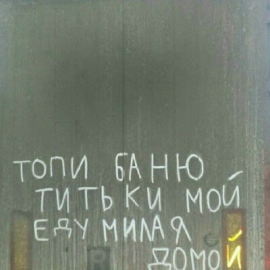 ТОПИ БАНЮ
ТИТЬКИ МОЙ
ЕДУ МИЛАЯ
ДОМОЙ